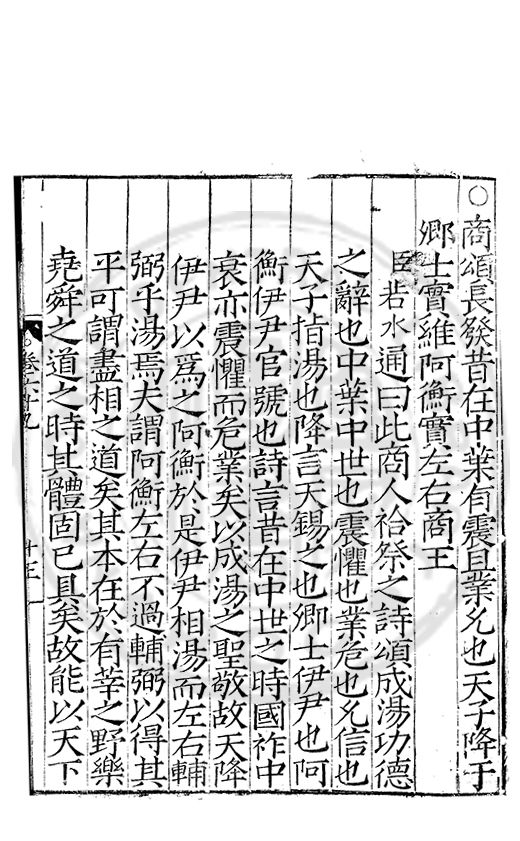 ○商頌長發昔在中葉有震且業允也天子降于
卿士實維阿衡實左右商王
臣若水通曰此商人祫祭之詩頌成湯功德
之辭也中葉中世也震懼也業危也允信也
天子指湯也降言天錫之也卿士伊尹也阿
衡伊尹官號也詩言昔在中世之時國祚中
衰亦震懼而危業矣以成湯之聖敬故天降
伊尹以爲之阿衡於是伊尹相湯而左右輔
弼乎湯焉夫謂阿衡左右不過輔弼以得其
平可謂盡相之道矣其本在於有莘之野樂
堯舜之道之時其體固已具矣故能以天下
卷六十九
十三